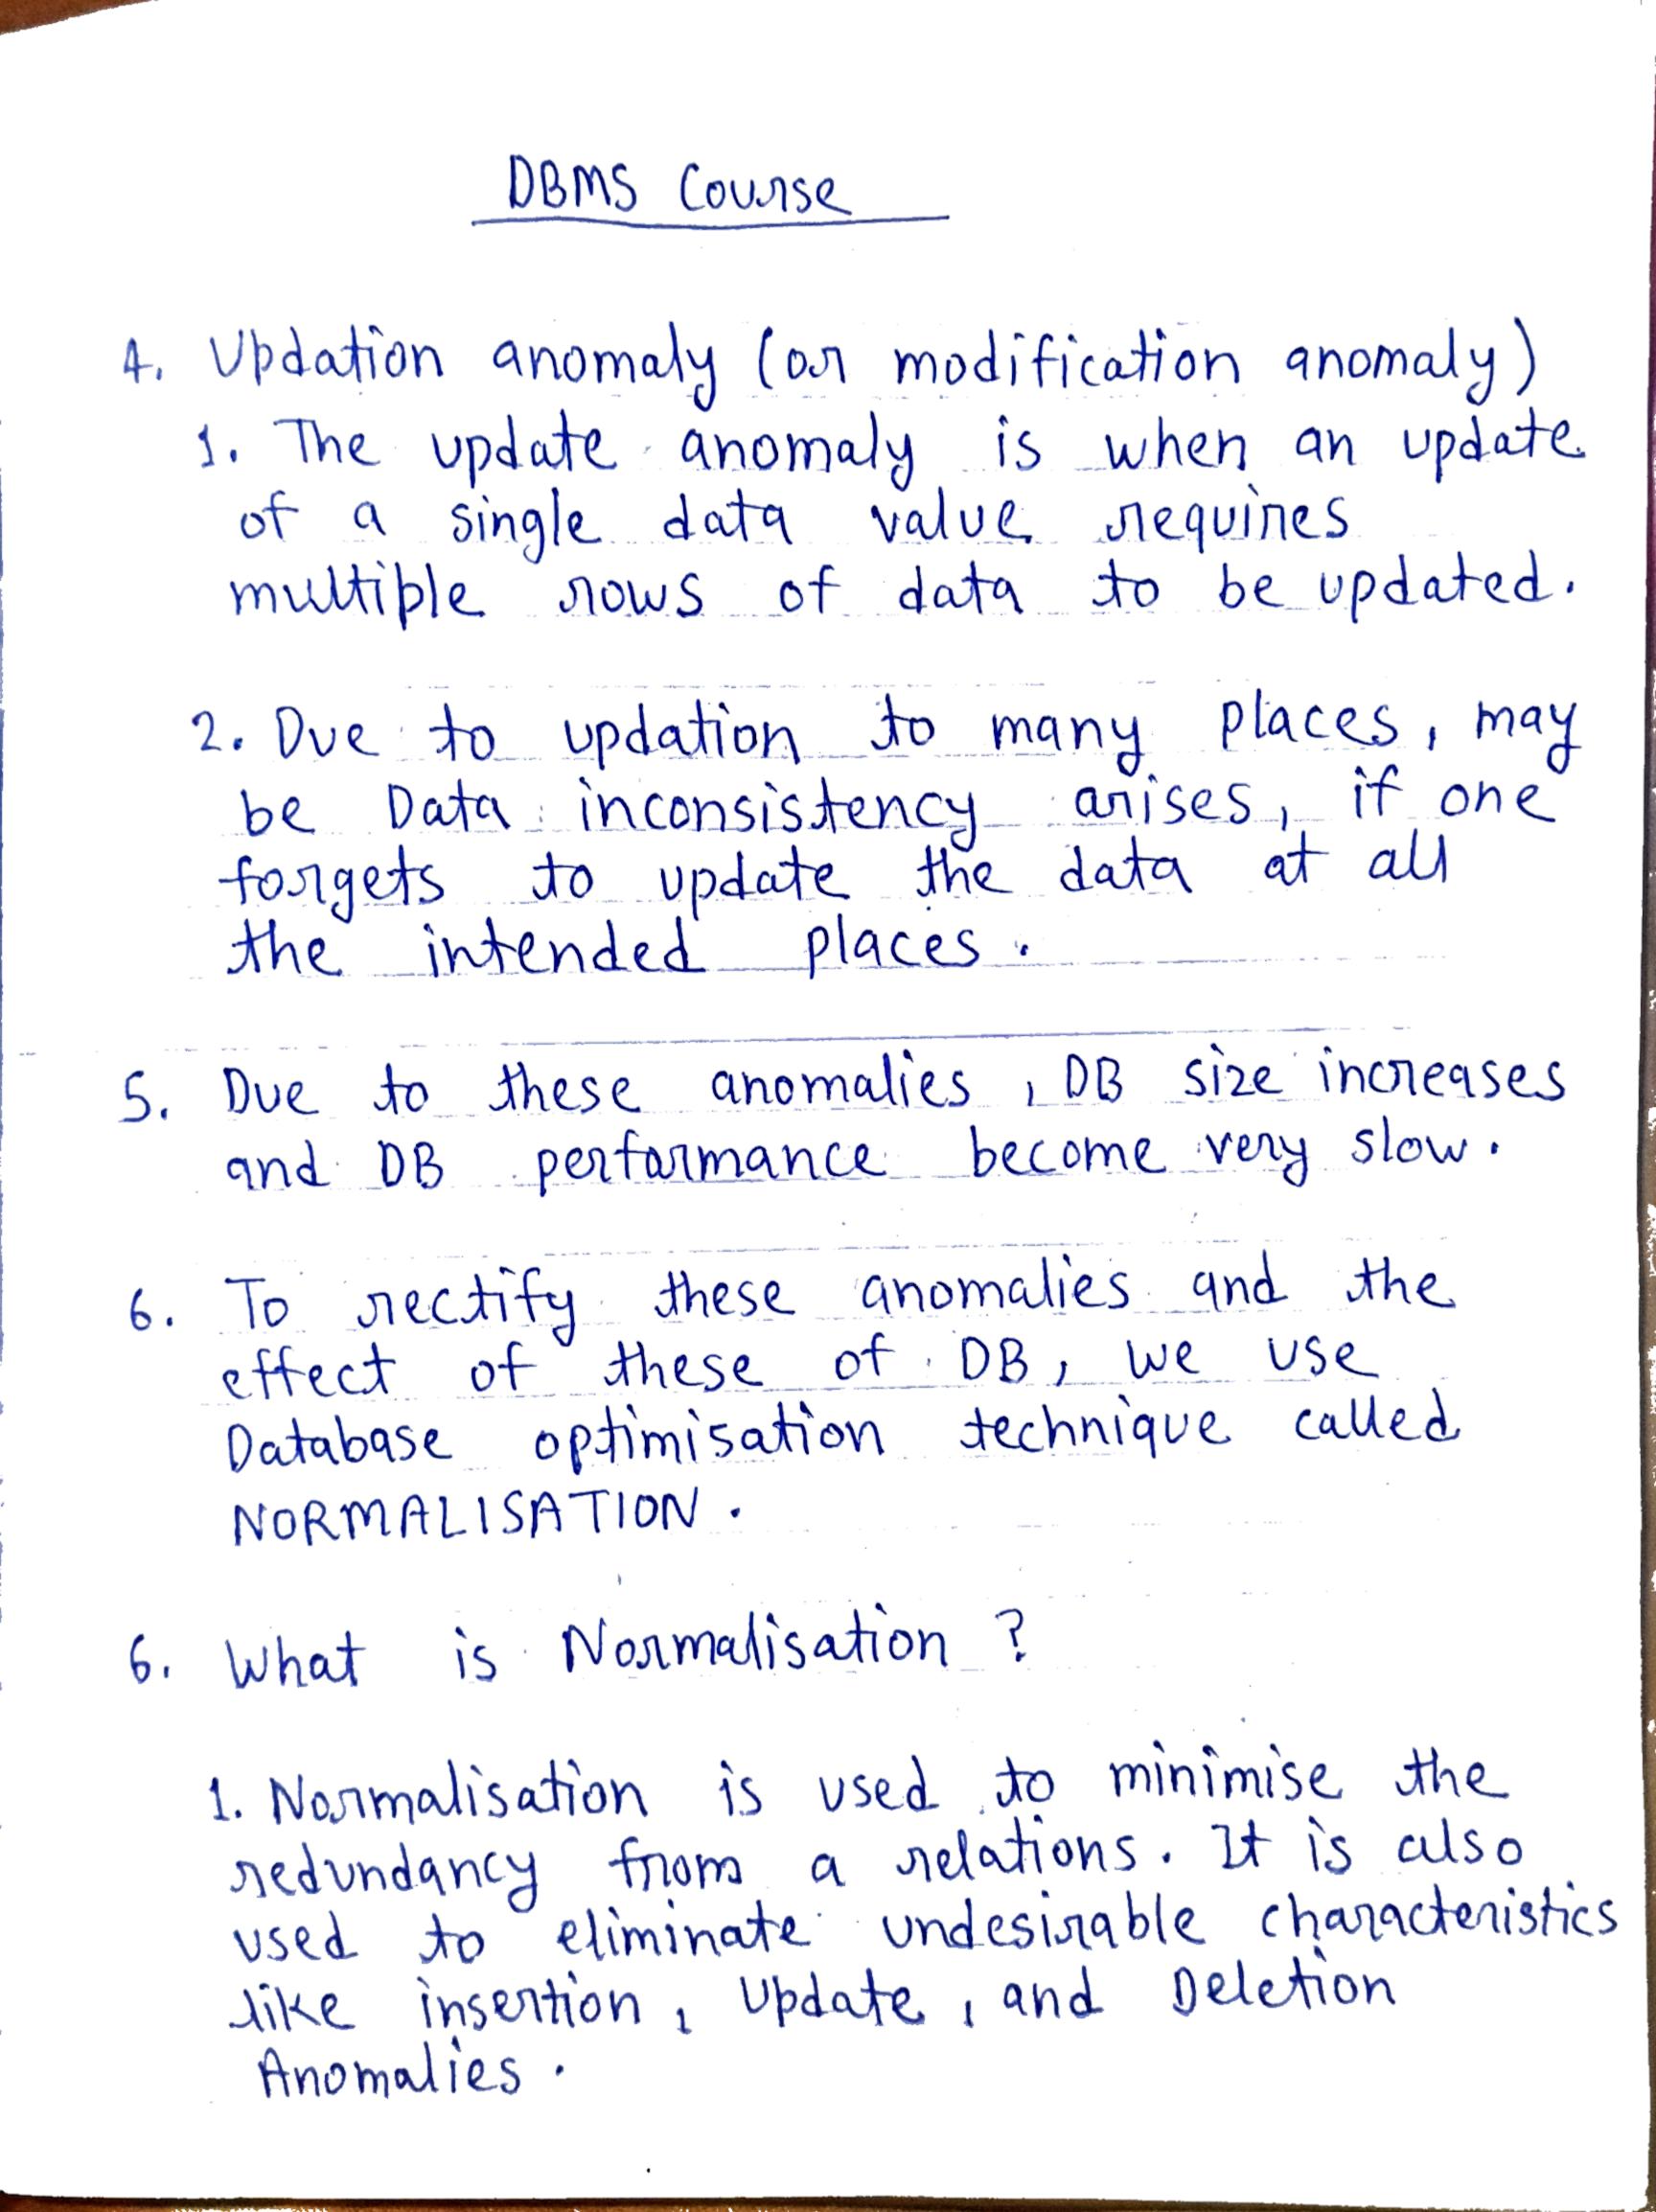 DBMS Course
4. Updation anomaly (or modification anomaly)
1. The update anomaly is when an update
of a single data value requires
multiple rows of data to be updated.
2. Due to updation to many places, may
be Data inconsistency arises, if one
forgets to update the data at all
the intended places.
5. Due to these anomalies, DB size increases
and DB performance become very slow.
6. To rectify these anomalies and the
effect of these of DB, we use
Database optimisation technique called
NORMALISATION.
6. What is Normalisation ?
1. Normalisation is used to minimise the
redundancy from a relations. It is also
used to eliminate undesirable characteristics
like insertion, Update, and Deletion
Anomalies.